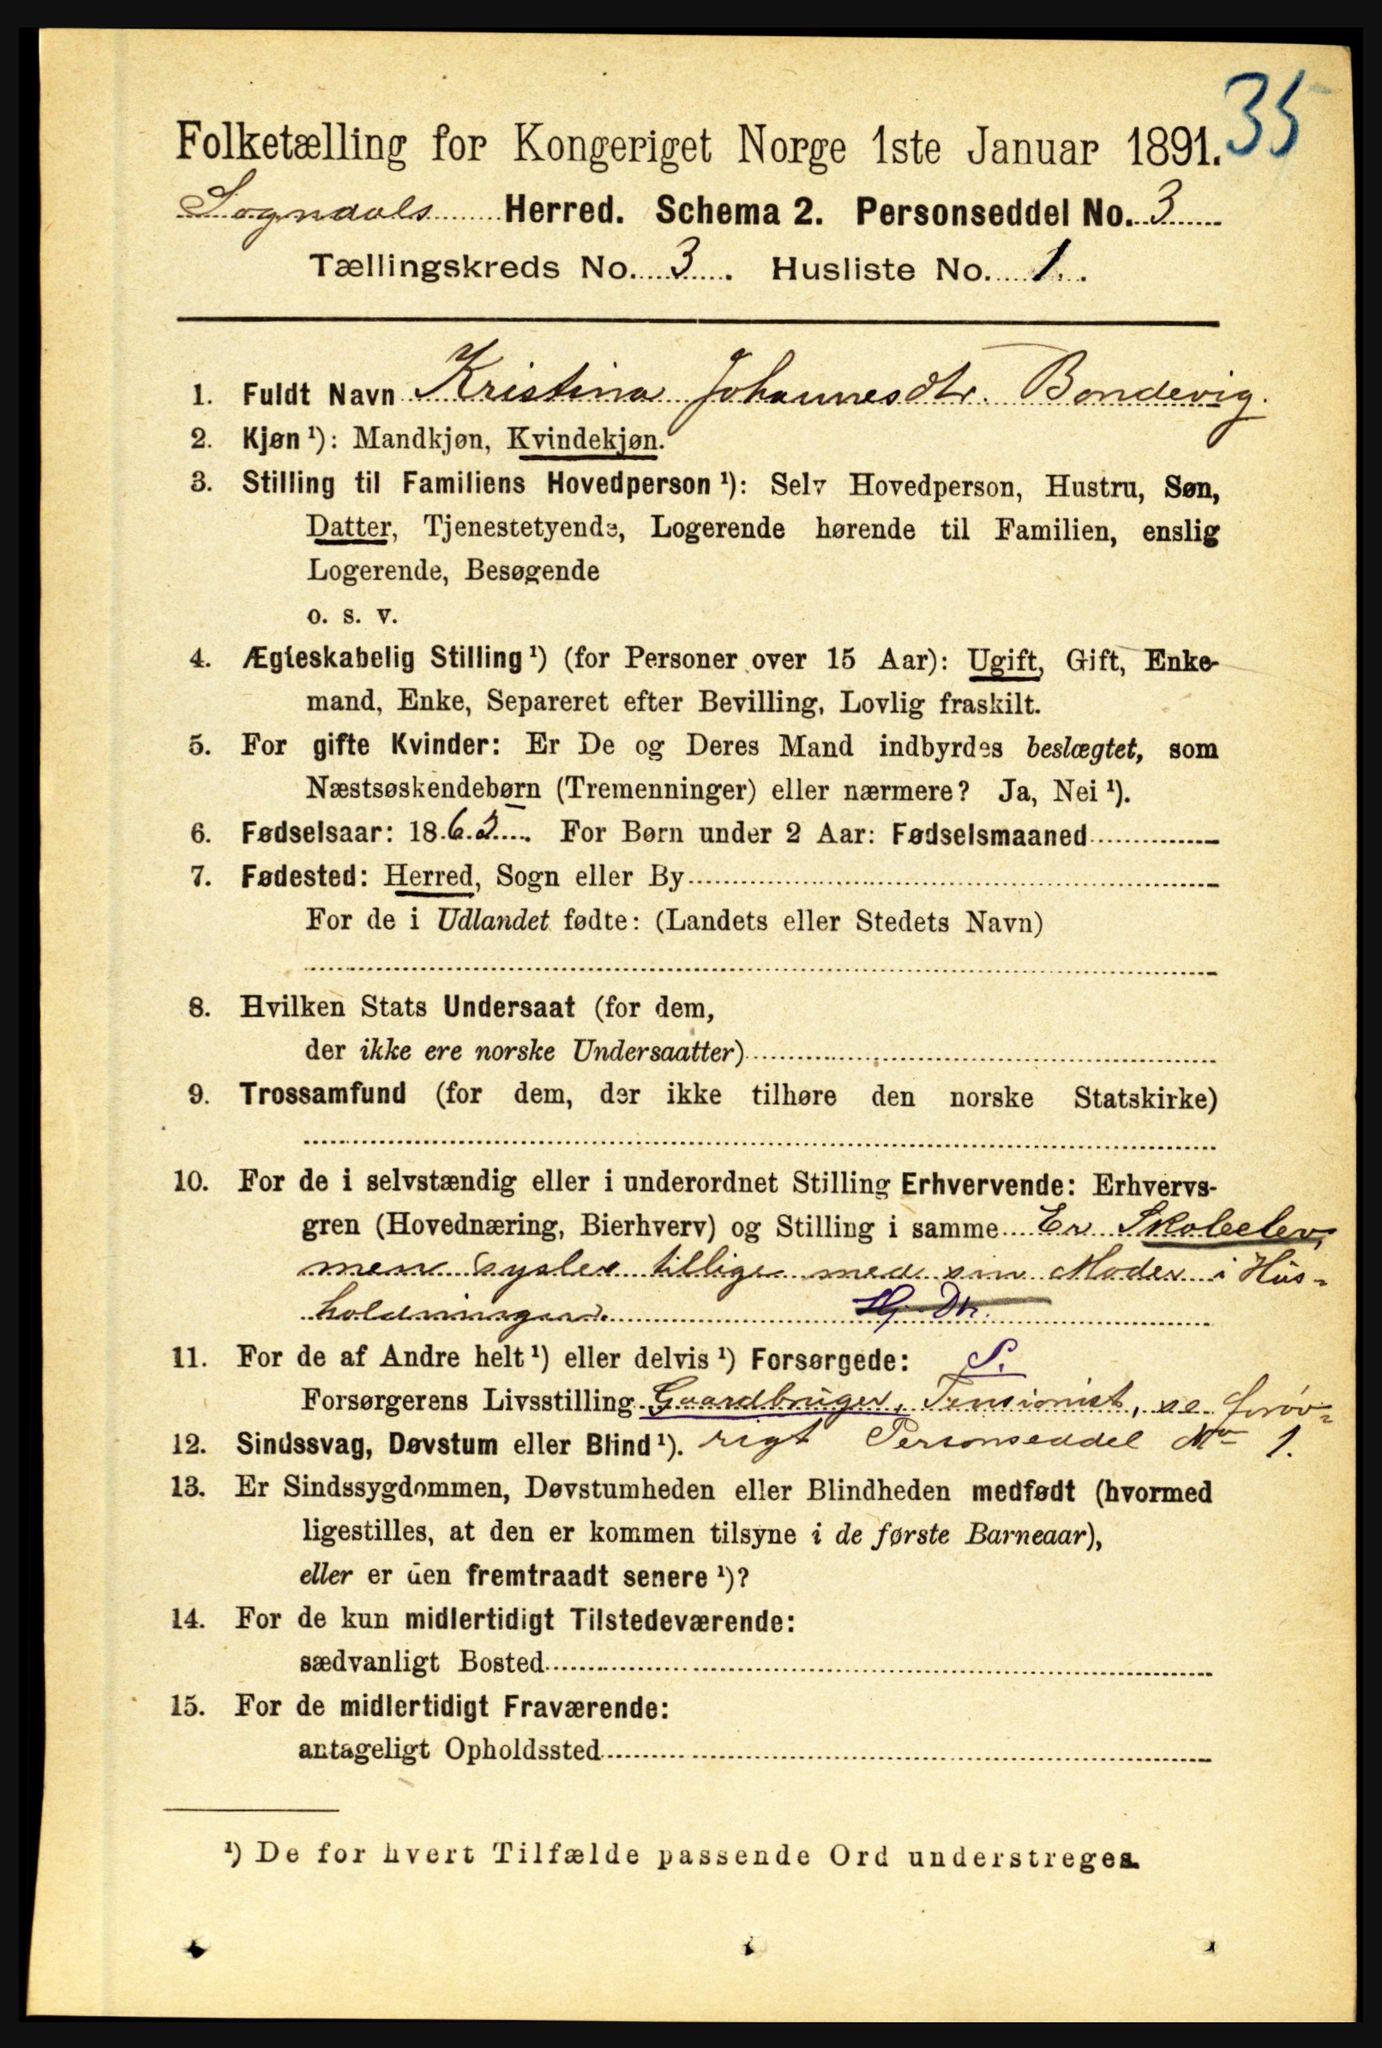 35
Folketælling for Kongeriget Norge 1ste Januar 1891.
Sogndals Herred. Schema 2. Personseddel No. 3
Tællingskreds No. 3. Husliste No. 1.
1. Fuldt Navn Kristina Johannesdtr. Bondevig.
2. Kjøn ¹): Mandkjøn, Kvindekjøn.
3. Stilling til Familiens Hovedperson ¹): Selv Hovedperson, Hustru, Søn,
Datter, Tjenestetyende, Logerende hørende til Familien, enslig
Logerende, Besøgende
o. s. v.
4. Ægteskabelig Stilling ¹) (for Personer over 15 Aar): Ugift, Gift, Enke-
mand, Enke, Separeret efter Bevilling, Lovlig fraskilt.
5. For gifte Kvinder: Er De og Deres Mand indbyrdes beslægtet, som
Næstsøskendebørn (Tremenninger) eller nærmere? Ja, Nei ¹).
6. Fødselsaar: 1865. For Børn under 2 Aar: Fødselsmaaned
7. Fødested: Herred, Sogn eller By
For de i Udlandet fødte: (Landets eller Stedets Navn)
8. Hvilken Stats Undersaat (for dem,
der ikke ere norske Undersaatter)
9. Trossamfund (for dem, der ikke tilhøre den norske Statskirke)
10. For de i selvstændig eller i underordnet Stilling Erhvervende: Erhvervs-
gren (Hovednæring, Bierhverv) og Stilling i samme Er Skoleelev,
men sysler tillige med sin Moder i Hus-
holdningen. Hj. Dtr.
11. For de af Andre helt ¹) eller delvis ¹) Forsørgede: S.
Forsørgerens Livsstilling Gaardbruger, Pensionist, se forøv-
12. Sindssvag, Døvstum eller Blind ¹). rigt Personseddel No 1.
13. Er Sindssygdommen, Døvstumheden eller Blindheden medfødt (hvormed
ligestilles, at den er kommen tilsyne i de første Barneaar),
eller er den fremtraadt senere ¹)?
14. For de kun midlertidigt Tilstedeværende:
sædvanligt Bosted
15. For de midlertidigt Fraværende:
antageligt Opholdssted
¹) De for hvert Tilfælde passende Ord understreges.